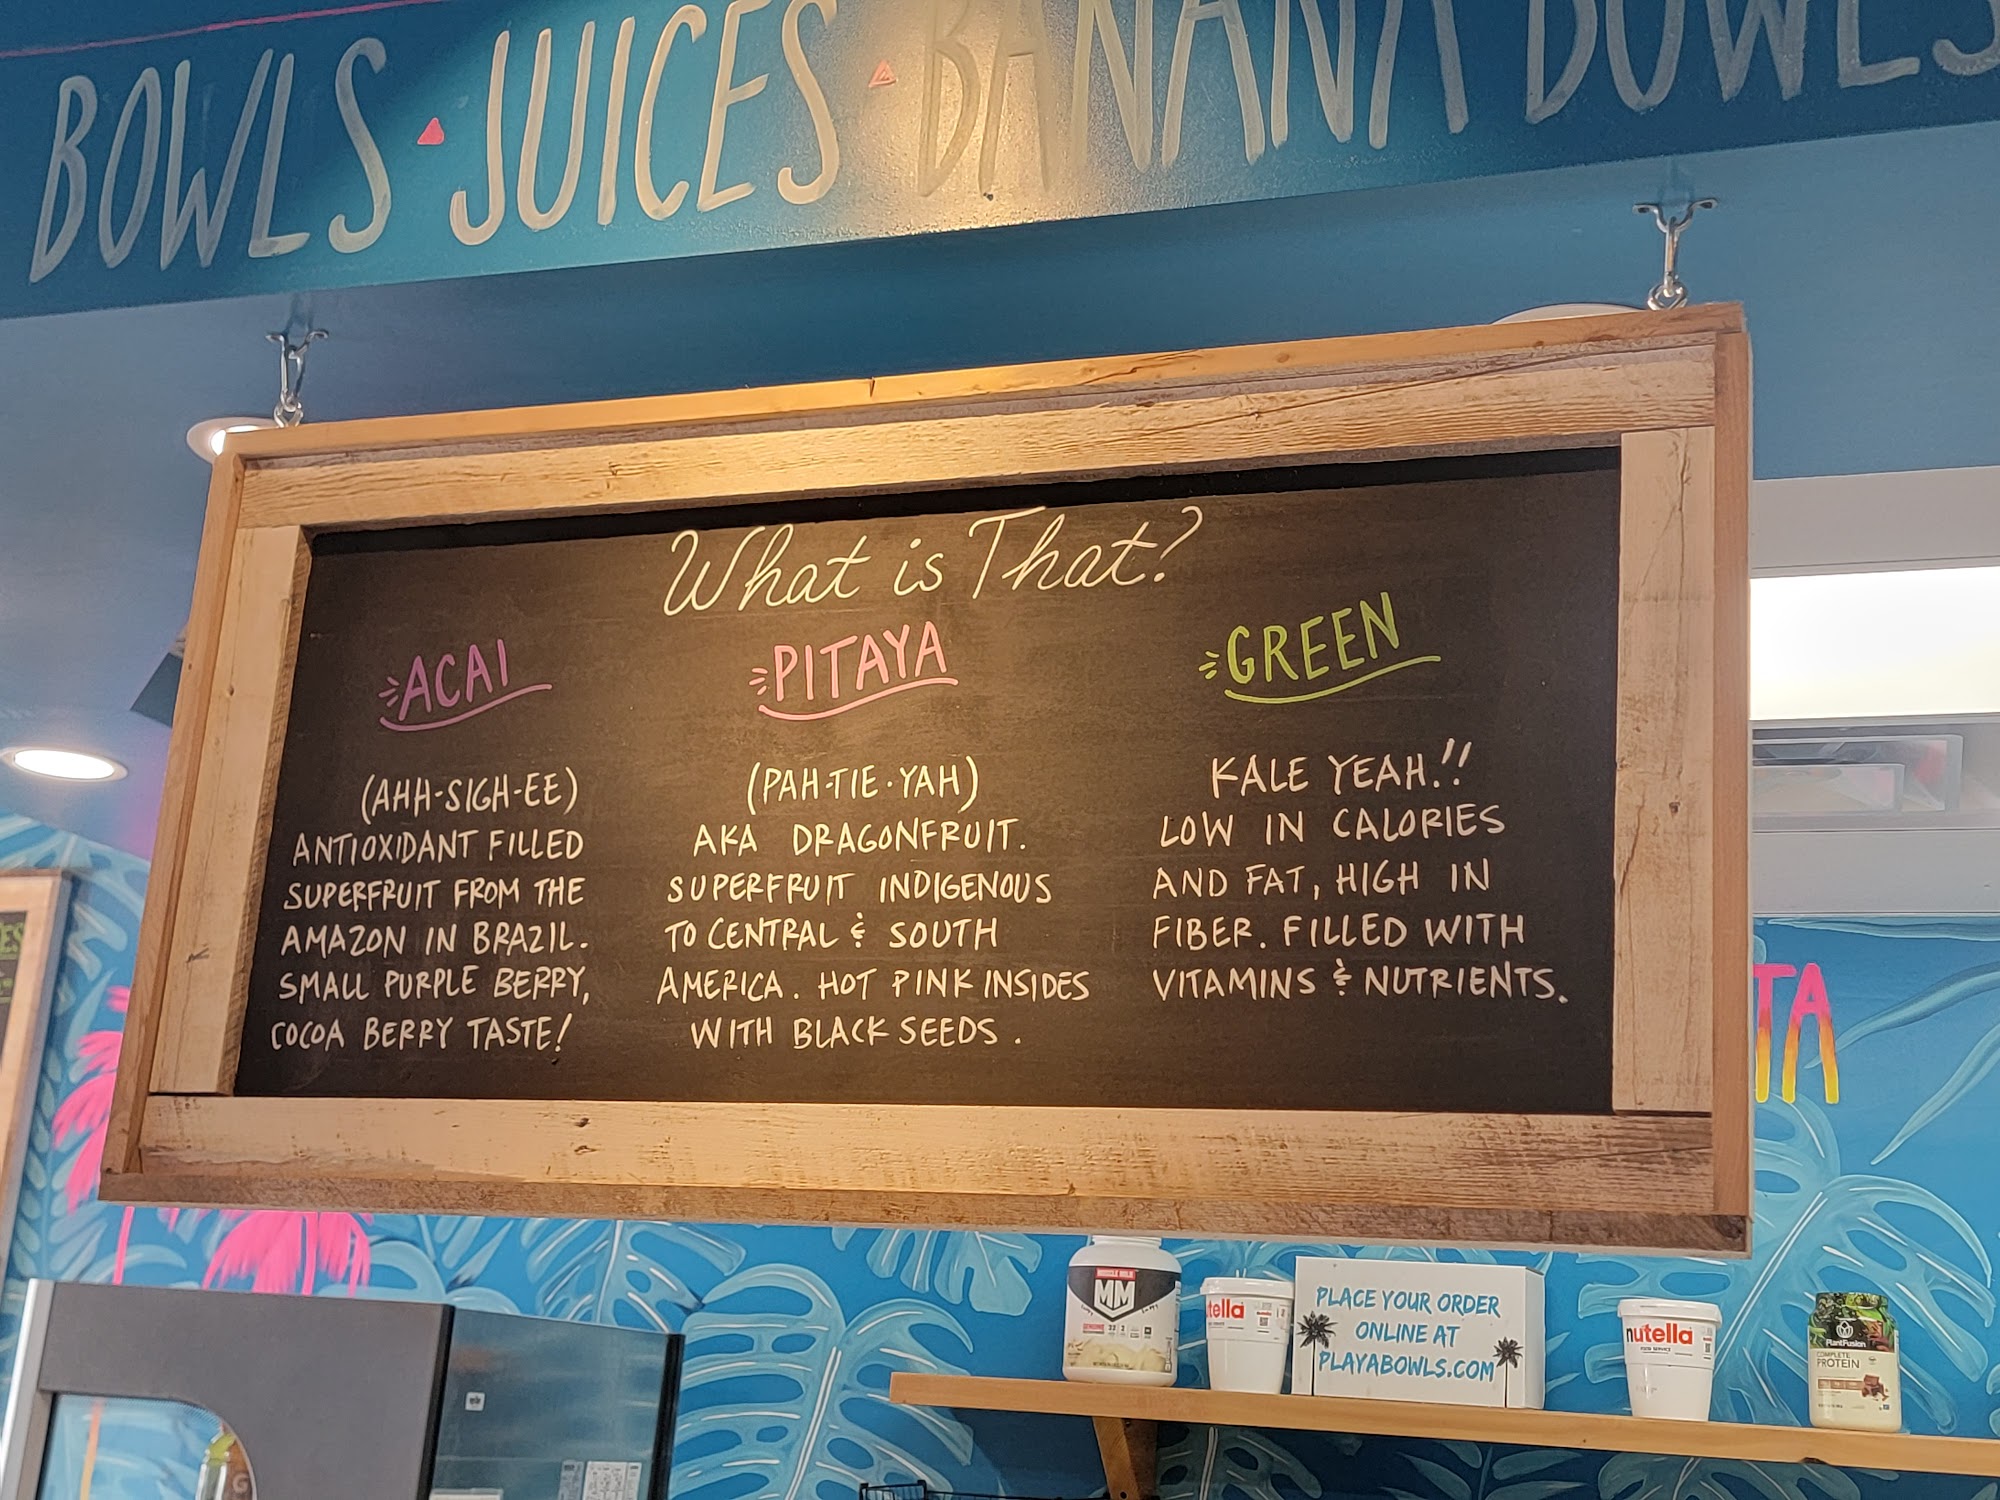 BOWLS JUICES BANANA BOWLS
What is That?
ACAI
(AHH-SIGH-EE)
ANTIOXIDANT FILLED
SUPERFRUIT FROM THE
AMAZON IN BRAZIL.
SMALL PURPLE BERRY,
COCOA BERRY TASTE!
PITAYA
(PAH-TIE-YAH)
AKA DRAGONFRUIT.
SUPERFRUIT INDIGENOUS
TO CENTRAL & SOUTH
AMERICA. HOT PINK INSIDES
WITH BLACK SEEDS.
GREEN
KALE YEAH!!
LOW IN CALORIES
AND FAT, HIGH IN
FIBER. FILLED WITH
VITAMINS & NUTRIENTS.
TA
ES
MUSCLE MILK
MM
GENUINE
tella
PLACE YOUR ORDER
ONLINE AT
PLAYABOWLS.COM
nutella
FOOD SERVICE
PlantFusion
COMPLETE
PROTEIN